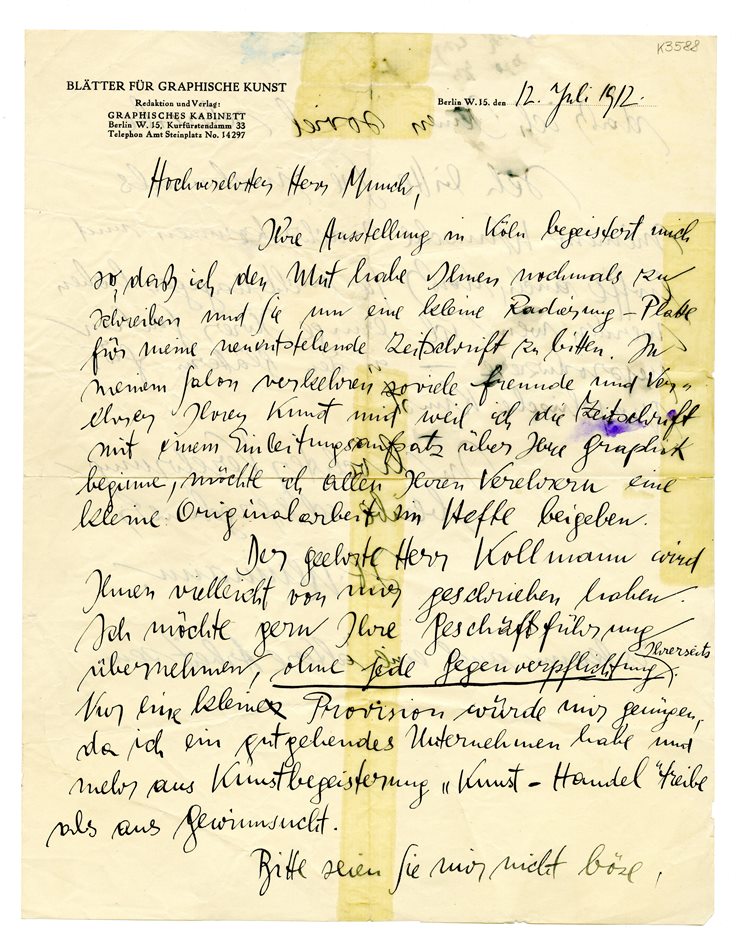 K3588
BLÄTTER FÜR GRAPHISCHE KUNST
Redaktion und Verlag:
GRAPHISCHES KABINETT
Berlin W. 15, Kurfürstendamm 33
Telephon Amt Steinplatz No. 14297
Berlin W. 15. den 12. Juli 1912.
Hochverehrter Herr Munch,
Ihre Ausstellung in Köln begeistert mich
so, daß ich den Mut habe Ihnen nochmals zu
schreiben und Sie um eine kleine Radierung-Platte
für meine neuentstehende Zeitschrift zu bitten. In
meinem Salon verkehren soviele Freunde und Ver-
ehrer Ihrer Kunst und, weil ich die Zeitschrift
mit einem Einleitungsaufsatz über Ihre Graphik
beginne, möchte ich allen Ihren Verehrern eine
kleine Originalarbeit im Hefte beigeben.
Der geehrte Herr Kollmann wird
Ihnen vielleicht von mir geschrieben haben.
Ich möchte gern Ihre Geschäftführung
übernehmen, ohne jede Gegenverpflichtung Ihrerseits.
Nur eine kleine Provision würde mir genügen,
da ich ein gutgehendes Unternehmen habe und
mehr aus Kunstbegeisterung „Kunst-Handel" treibe
als aus Gewinnsucht.
Bitte seien Sie mir nicht böse,